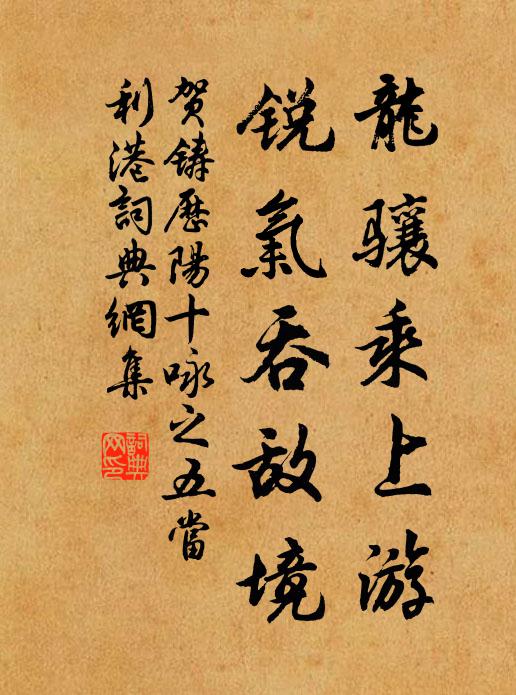 龍驤乘上游
銳氣吞敵境
賀鑄歷陽十詠之五當
利港詞典網集
詞典網印